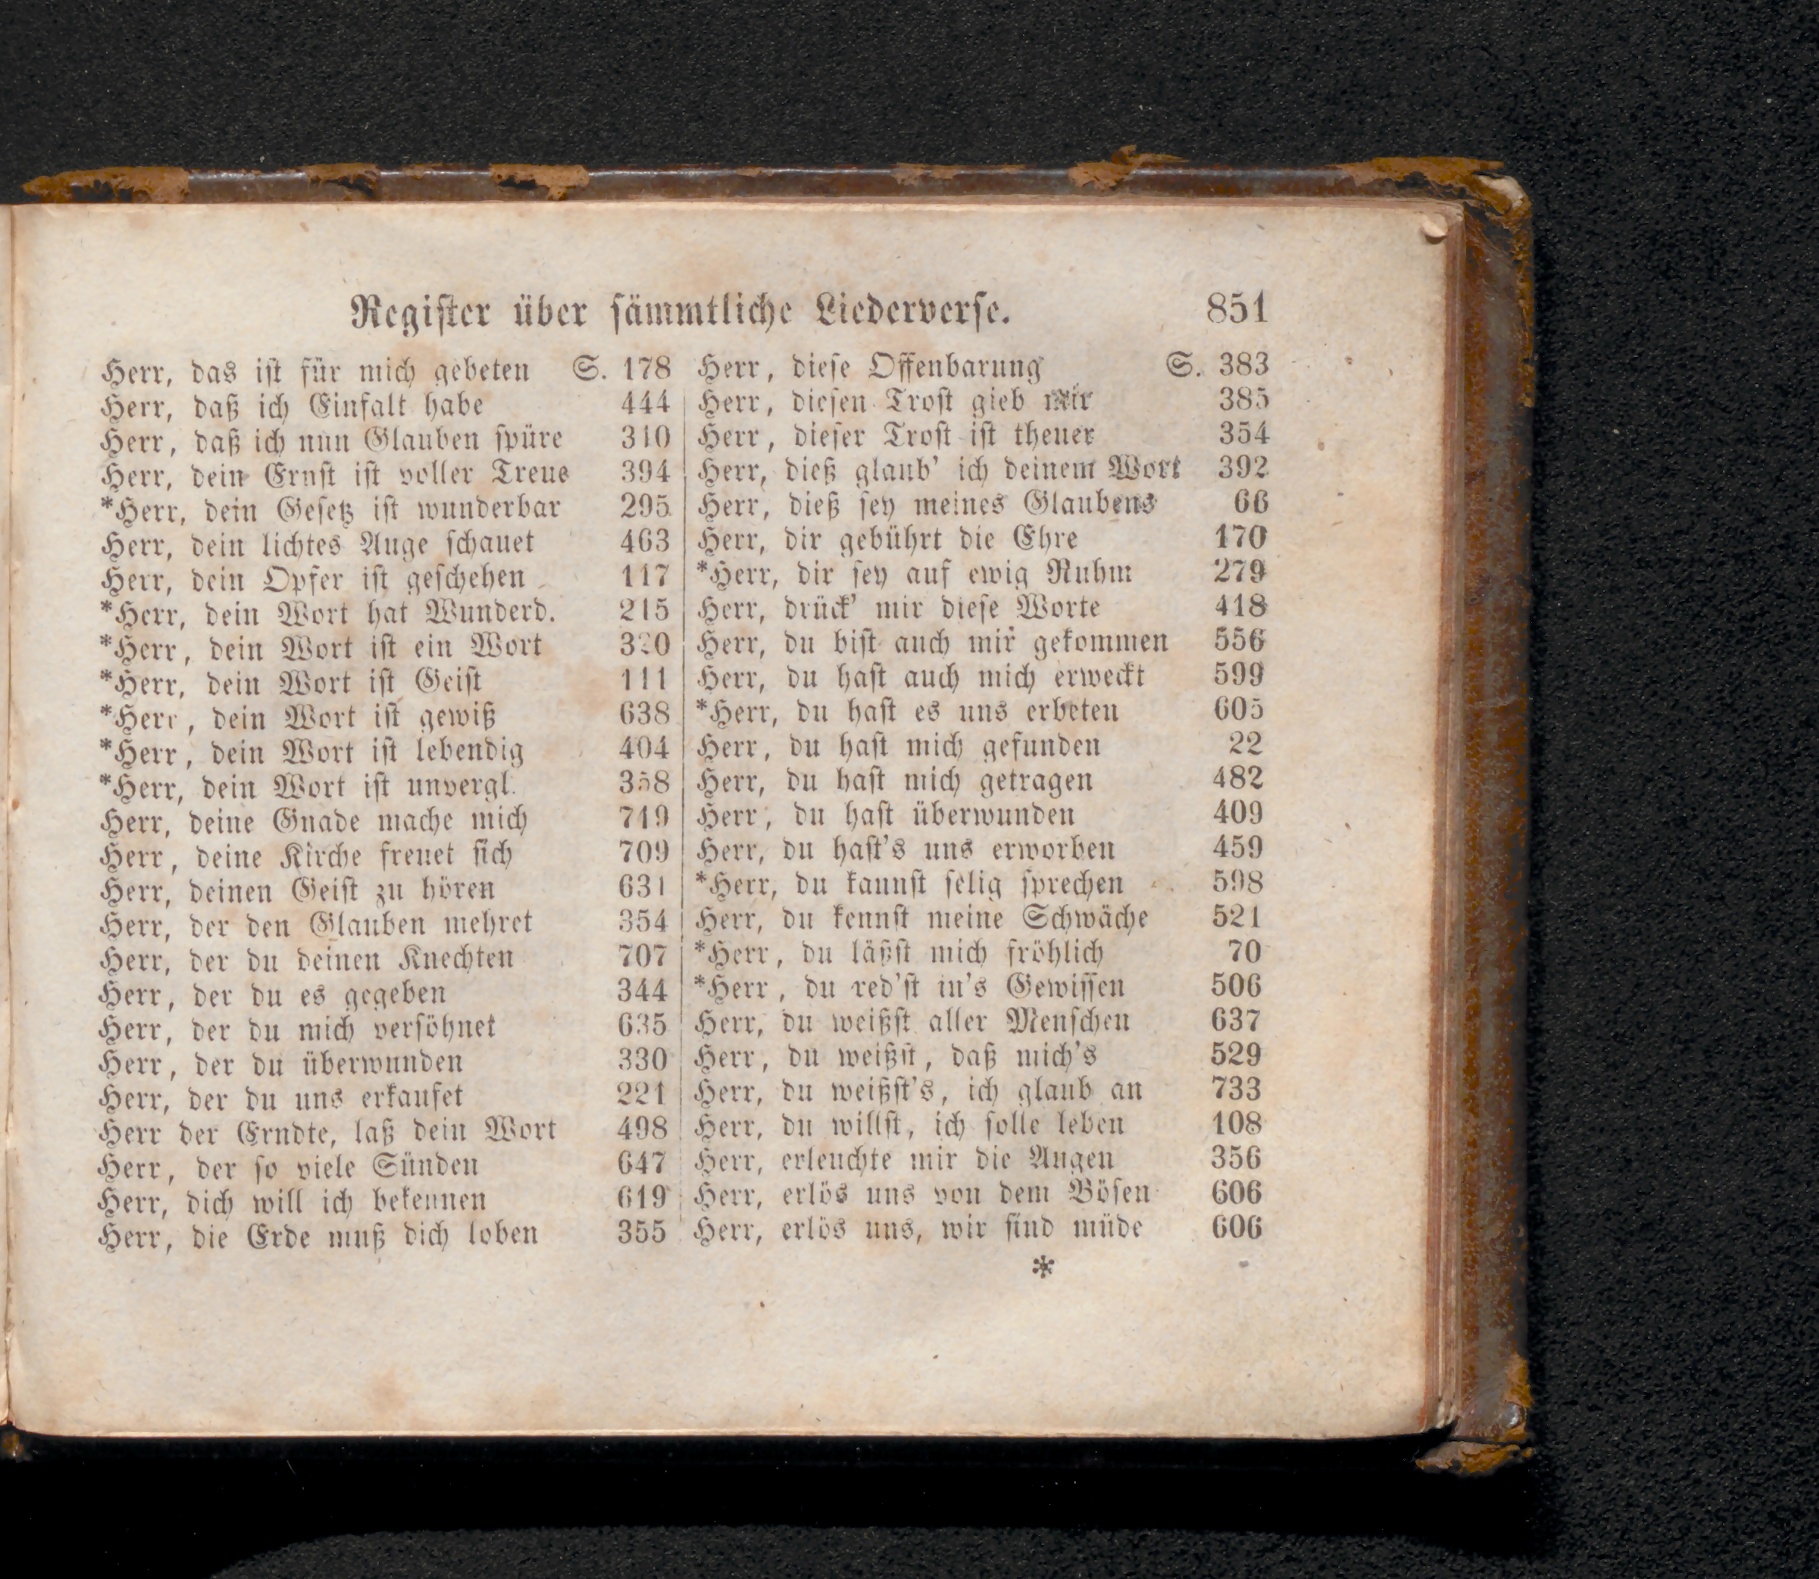 Register über sämmtliche Liederverse. 851
Herr, das ist für mich gebeten S. 178
Herr, daß ich Einfalt habe 444
Herr, daß ich nun Glauben spüre 310
Herr, dein Ernst ist voller Treue 394
*Herr, dein Gesetz ist wunderbar 295
Herr, dein lichtes Auge schauet 463
Herr, dein Opfer ist geschehen 117
*Herr, dein Wort hat Wunderd. 215
*Herr, dein Wort ist ein Wort 320
*Herr, dein Wort ist Geist 111
*Herr, dein Wort ist gewiß 638
*Herr, dein Wort ist lebendig 404
*Herr, dein Wort ist unvergl. 358
Herr, deine Gnade mache mich 719
Herr, deine Kirche freuet sich 709
Herr, deinen Geist zu hören 631
Herr, der den Glauben mehret 354
Herr, der du deinen Knechten 707
Herr, der du es gegeben 344
Herr, der du mich versöhnet 635
Herr, der du überwunden 330
Herr, der du uns erkaufet 221
Herr der Erndte, laß dein Wort 498
Herr, der so viele Sünden 647
Herr, dich will ich bekennen 619
Herr, die Erde muß dich loben 355
Herr, diese Offenbarung S. 383
Herr, diesen Trost gieb mir 385
Herr, dieser Trost ist theuer 354
Herr, dieß glaub' ich deinem Wort 392
Herr, dieß sey meines Glaubens 66
Herr, dir gebührt die Ehre 170
*Herr, dir sey auf ewig Ruhm 279
Herr, drück' mir diese Worte 418
Herr, du bist auch mir gekommen 556
Herr, du hast auch mich erweckt 599
*Herr, du hast es uns erbeten 605
Herr, du hast mich gefunden 22
Herr, du hast mich getragen 482
Herr, du hast überwunden 409
Herr, du hast's uns erworben 459
*Herr, du kannst selig sprechen 598
Herr, du kennst meine Schwäche 521
*Herr, du läßst mich fröhlich 70
*Herr, du red'st in's Gewissen 506
Herr, du weißst aller Menschen 637
Herr, du weißst, daß mich's 529
Herr, du weißst's, ich glaub an 733
Herr, du willst, ich solle leben 108
Herr, erleuchte mir die Augen 356
Herr, erlös uns von dem Bösen 606
Herr, erlös uns, wir sind müde 606
*